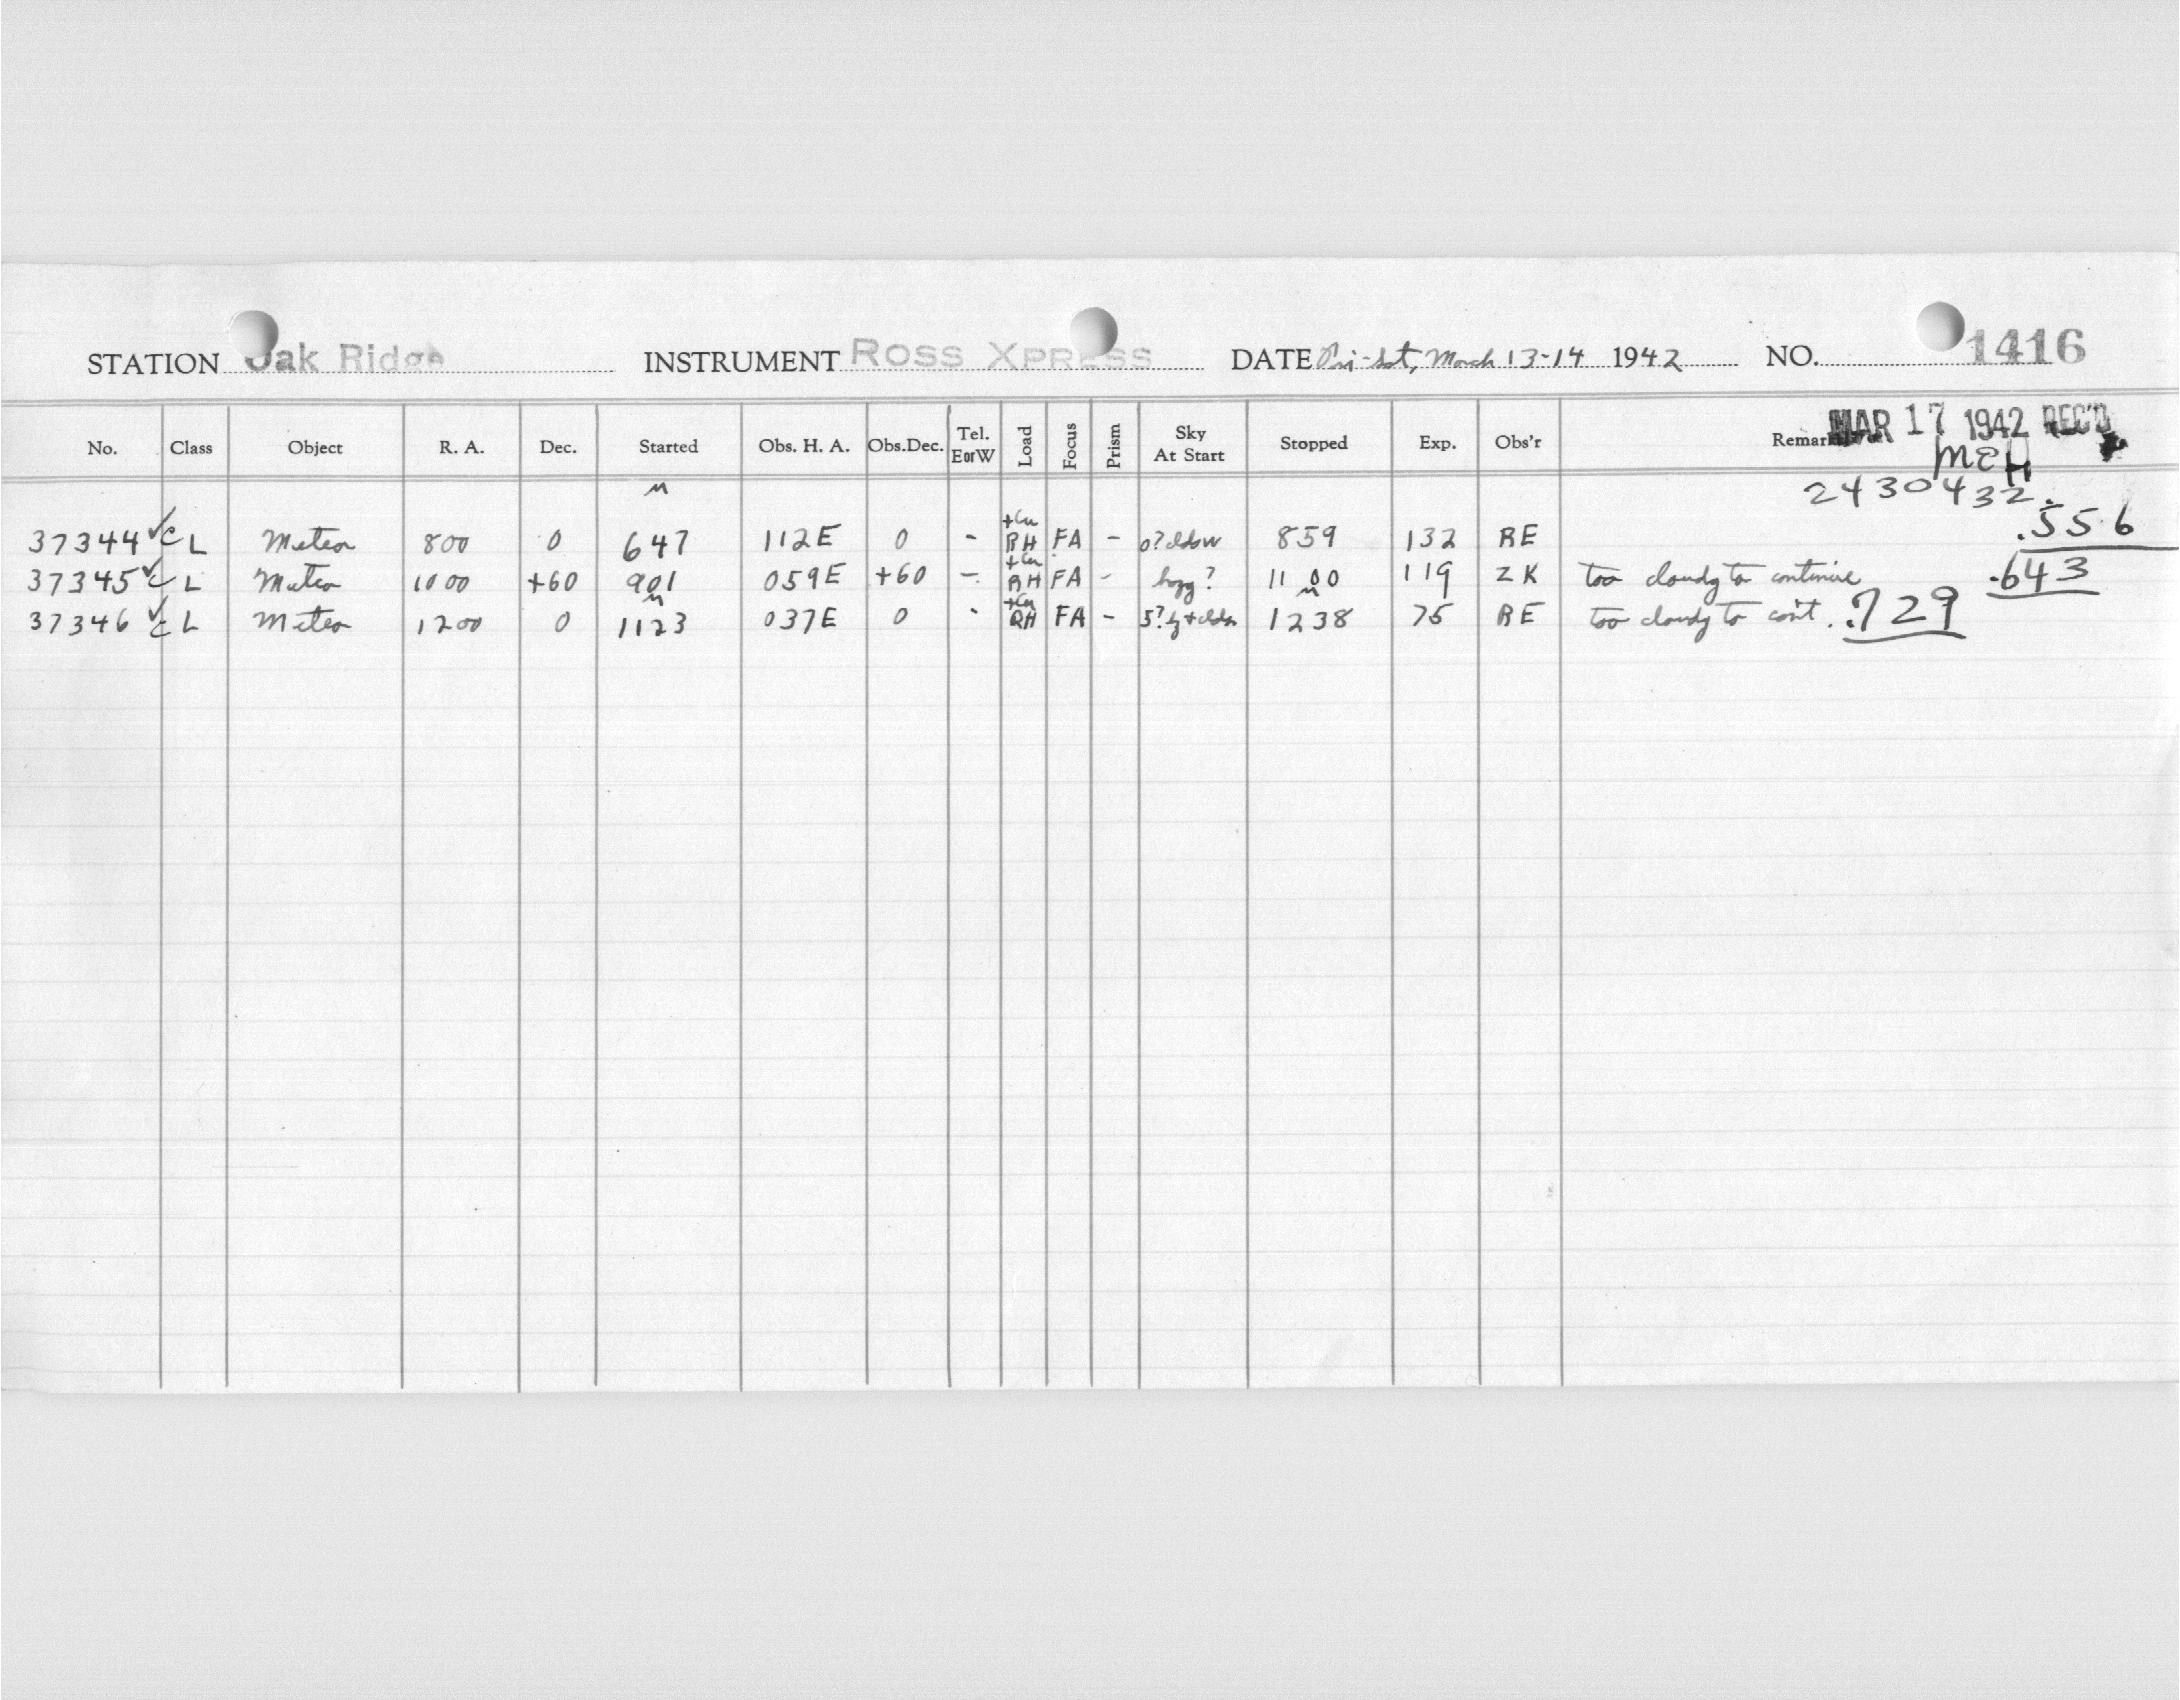 STATION Oak Ridge INSTRUMENT ROSS XPRESS DATE Fri-Sat, March 13-14 1942 NO. 1416
No. Class Object R. A. Dec. Started Obs. H. A. Obs.Dec. Tel. EorW Load Focus Prism Sky At Start Stopped Exp. Obs'r Remar MAR 17 1942 REC'D
MEH
2430432.
37344 ✓ C L Meteor 800 0 647 112E 0 - +Cu RH FA - 0? clds W 859 132 RE .556
37345 ✓ C L Meteor 1000 +60 901 059E +60 - +Cu RH FA - hazy? 11 00 119 ZK too cloudy to continue .643
37346 ✓ C L Meteor 1200 0 1123 037E 0 - +Cu RH FA - 5? hz + clds 1238 75 RE too cloudy to con't. .729